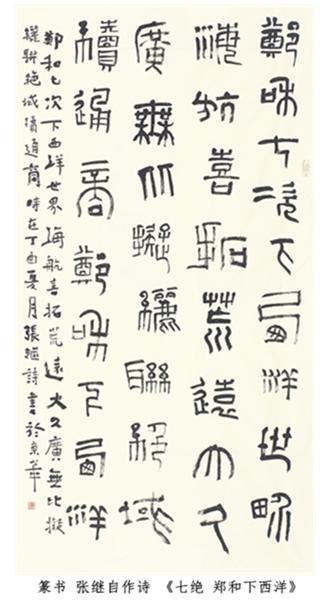 鄭和七次下西洋世界
海航喜拓荒遠大久
廣無比擬聯絕域
續通商鄭和下西洋
鄭和七次下西洋世界海航喜拓荒遠大久廣無比擬
聯絕域續通商時在丁酉夏月張繼詩書於京華
篆书 张继自作诗 《七绝 郑和下西洋》